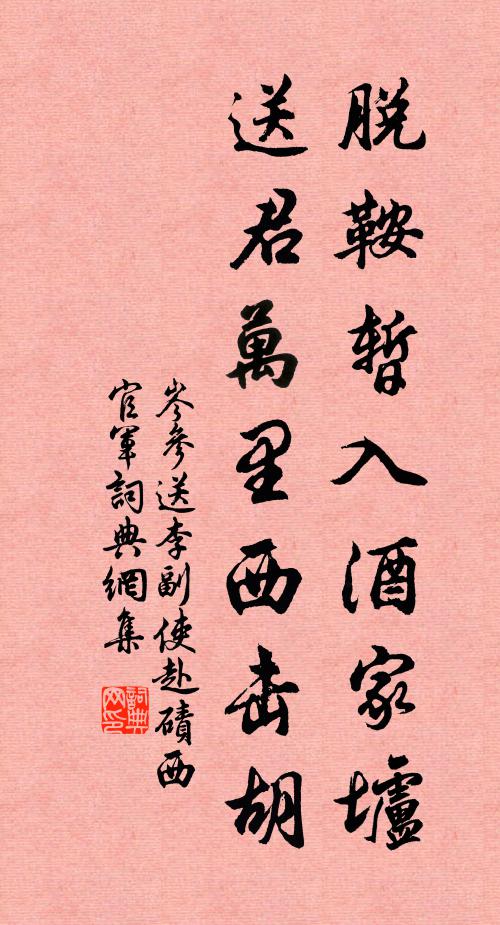 脫鞍暫入酒家壚
送君萬里西击胡
岑參送李副使赴磧西
官軍詞典網集
詞典
网印